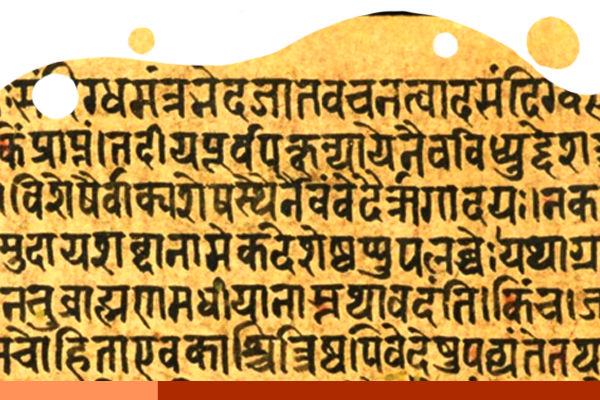 संदिग्धमंत्रभेदजातवचनत्वादसंदिग्धस
किंप्राप्तं।तदीयपूर्वपक्षन्यायेनैवविध्युद्देश
।विशेषैर्वाक्यशेषस्थैर्नैवंवेदैर्ऋगादयः।नक
मुदायशब्दानामेकदेशेष्वप्युपलब्धेः।यथाग्रा
ननुब्राह्मणमधीयाना वदंति।किंचा
हिताएवकाश्चित्रिष्वपिवेदेषुपठ्यंतेतय